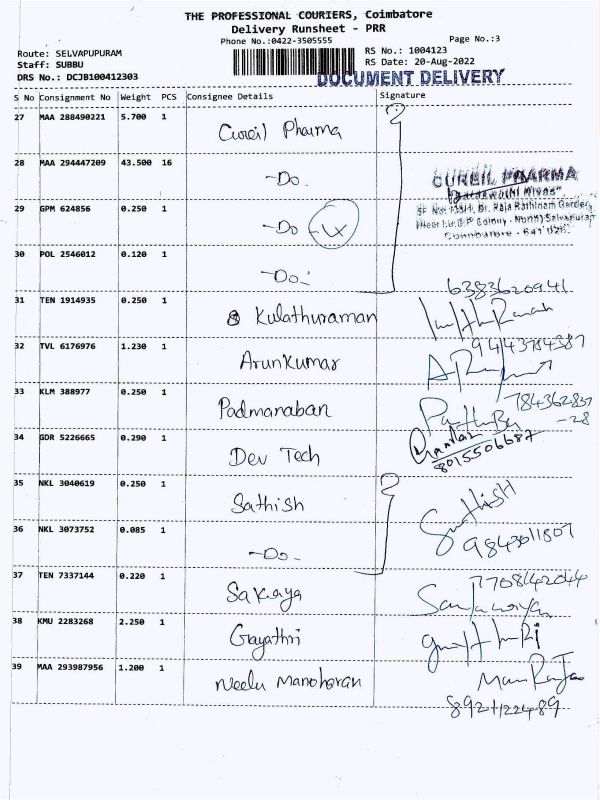 THE PROFESSIONAL COURIERS, Coimbatore
Delivery Runsheet - PRR
Phone No.:0422-3505555
Page No.:3
Route: SELVAPUPURAM
RS No.: 1004123
Staff: SUBBU
RS Date: 20-Aug-2022
DRS No.: DCJB100412303
DOCUMENT DELIVERY
S No Consignment No Weight PCS Consignee Details Signature
27 MAA 288490221 5.700 1 Cureil Pharma
28 MAA 294447209 43.500 16 -Do.
CUREIL PHARMA
29 GPM 624856 0.250 1 -Do
SF No: Dr. Raja Rathinam Garden,
Colony - North) Selvapuram
Coimbatore - 641 026.
30 POL 2546012 0.120 1 -Do.
6383620941
31 TEN 1914935 0.250 1 Kulathuraman
32 TVL 6176976 1.230 1 Arunkumar
33 KLM 388977 0.250 1 Padmanaban
34 GDR 5226665 0.290 1 Dev Tech
8015506687
35 NKL 3040619 0.250 1 Sathish
Sathish
36 NKL 3073752 0.085 1 -Do.
9843011807
37 TEN 7337144 0.220 1 Sakaya
38 KMU 2283268 2.250 1 Gayathri
39 MAA 293987956 1.200 1 Neelu Manoharan